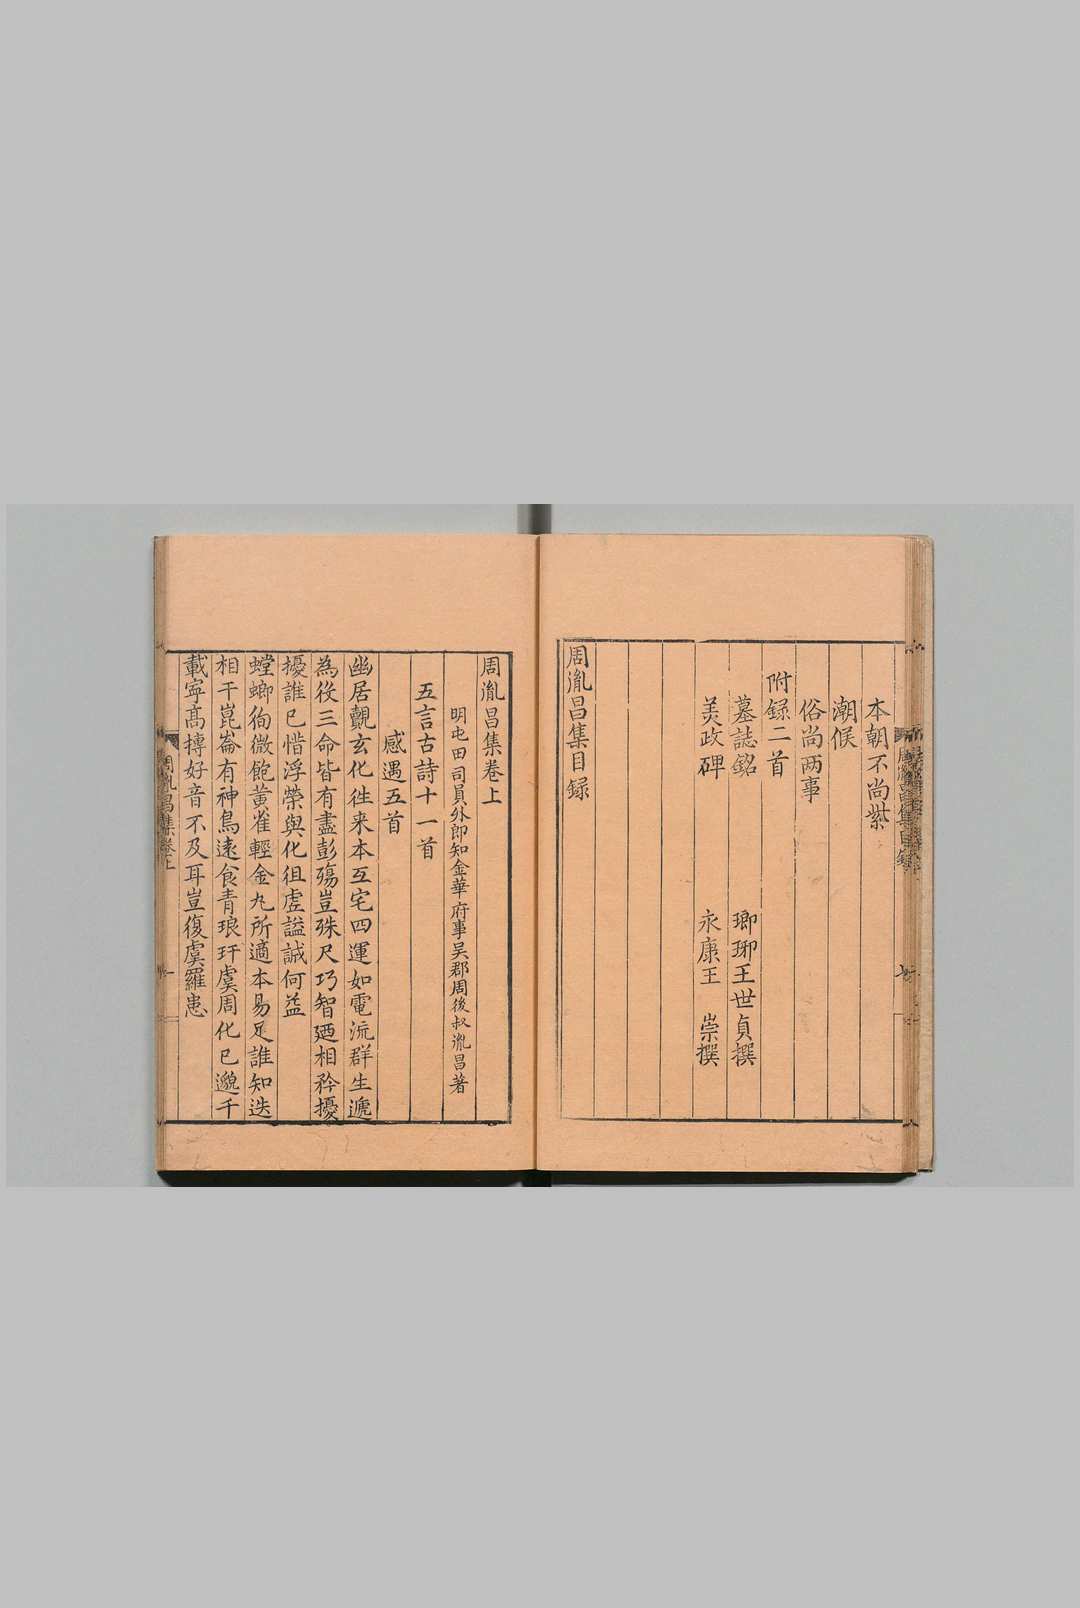 本朝不尚紫
潮候
俗尚两事
附録二首
墓誌銘 瑯琊王世貞撰
美政碑 永康王 崇撰
周胤昌集目録
周胤昌集卷上
明屯田司員外郎知金華府事吴郡周後叔胤昌著
五言古詩十一首
感遇五首
幽居覿玄化徃来本互宅四運如電流群生遞
為役三命皆有盡彭殤豈殊尺巧智廼相矜擾
擾誰已惜浮榮與化徂虗謚誠何益
螳螂徇微飽黄雀輕金丸所適本易足誰知迭
相干崑崙有神鳥逺食青琅玕虞周化已邈千
載寜髙摶好音不及耳豈復虞羅患
周胤昌集卷上